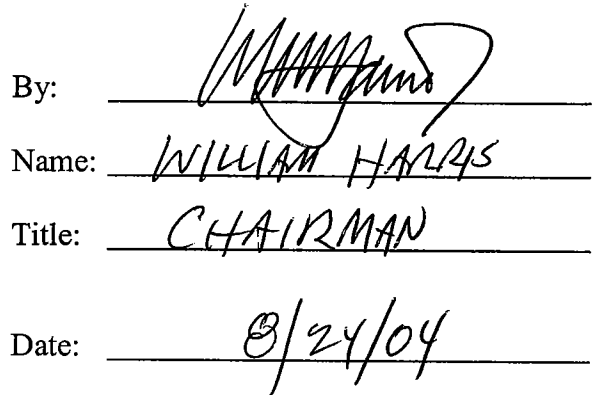 By:
Name: WILLIAM HARRIS
Title: CHAIRMAN
Date: 8/24/04